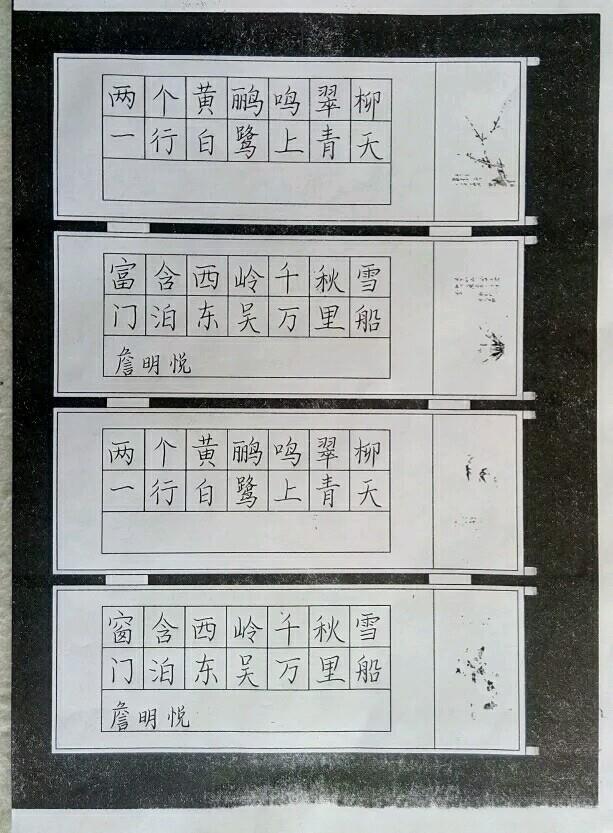 两个黄鹂鸣翠柳
一行白鹭上青天
富含西岭千秋雪
门泊东吴万里船
詹明悦
两个黄鹂鸣翠柳
一行白鹭上青天
窗含西岭千秋雪
门泊东吴万里船
詹明悦